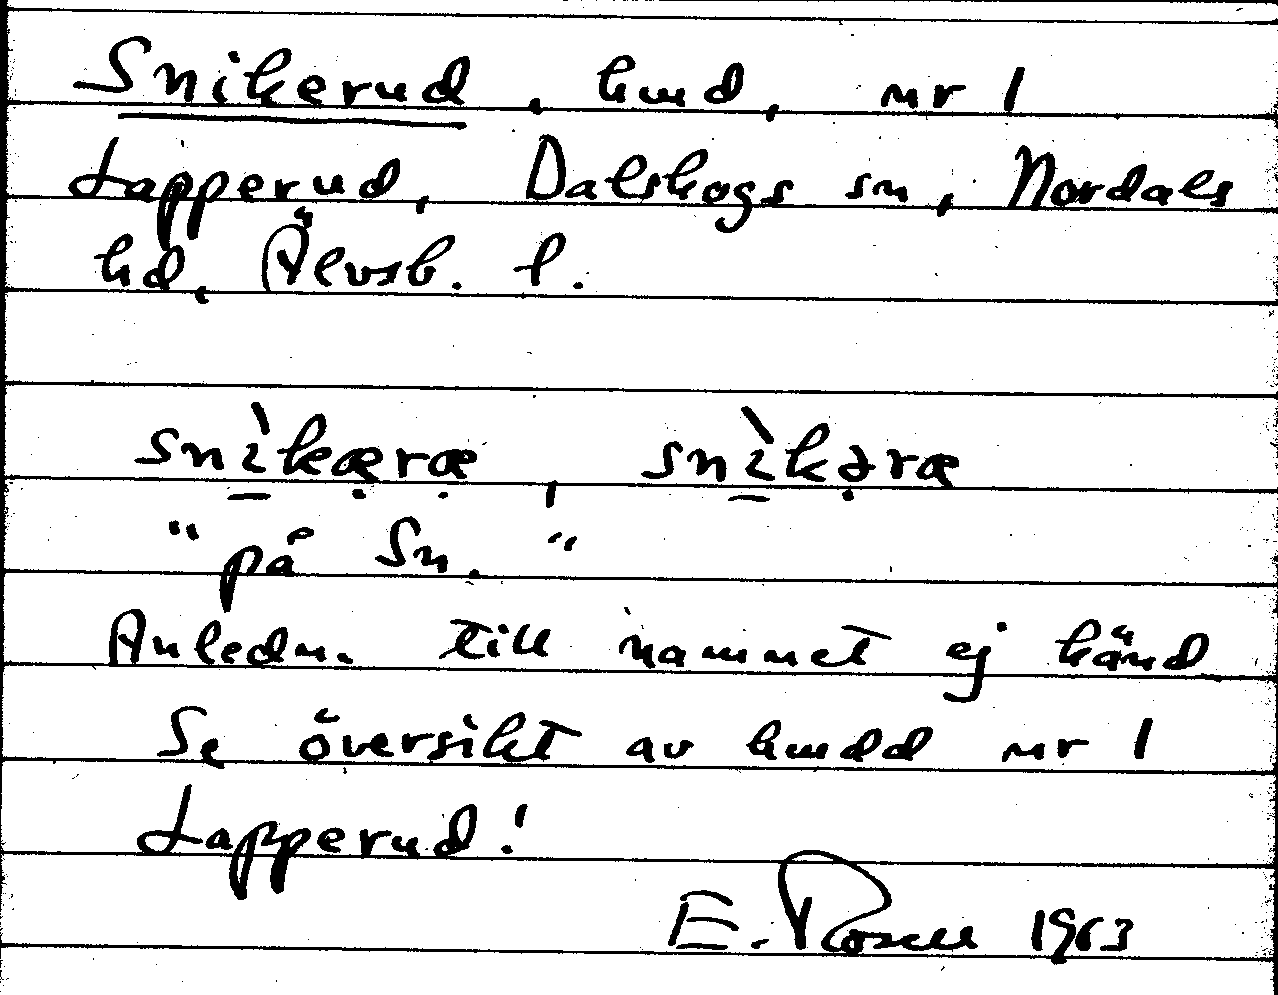 Snikerud, hmd, nr 1
Lapperud, Dalskogs sn, Nordals
hd, Älvsb. l.
snìkæ̣ræ̣, snìkə̣ræ
"på Sn."
Anledn. till namnet ej känd
Se översikt av hmdd nr 1
Lapperud!
E. Rosell 1963